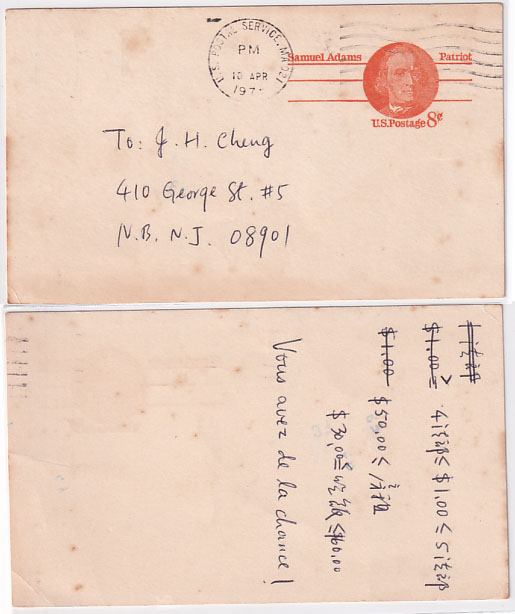 U.S. POSTAL SERVICE, MA 021
PM
10 APR
197
Samuel Adams Patriot
U.S. Postage 8¢
To: J. H. Cheng
410 George St. #5
N.B. N.J. 08901
$1.00 =
≤ $1.00 ≤ 5
$1.00 $50.00 <
$30.00 ≤ ≤ $60.00
Vous avez de la chance!